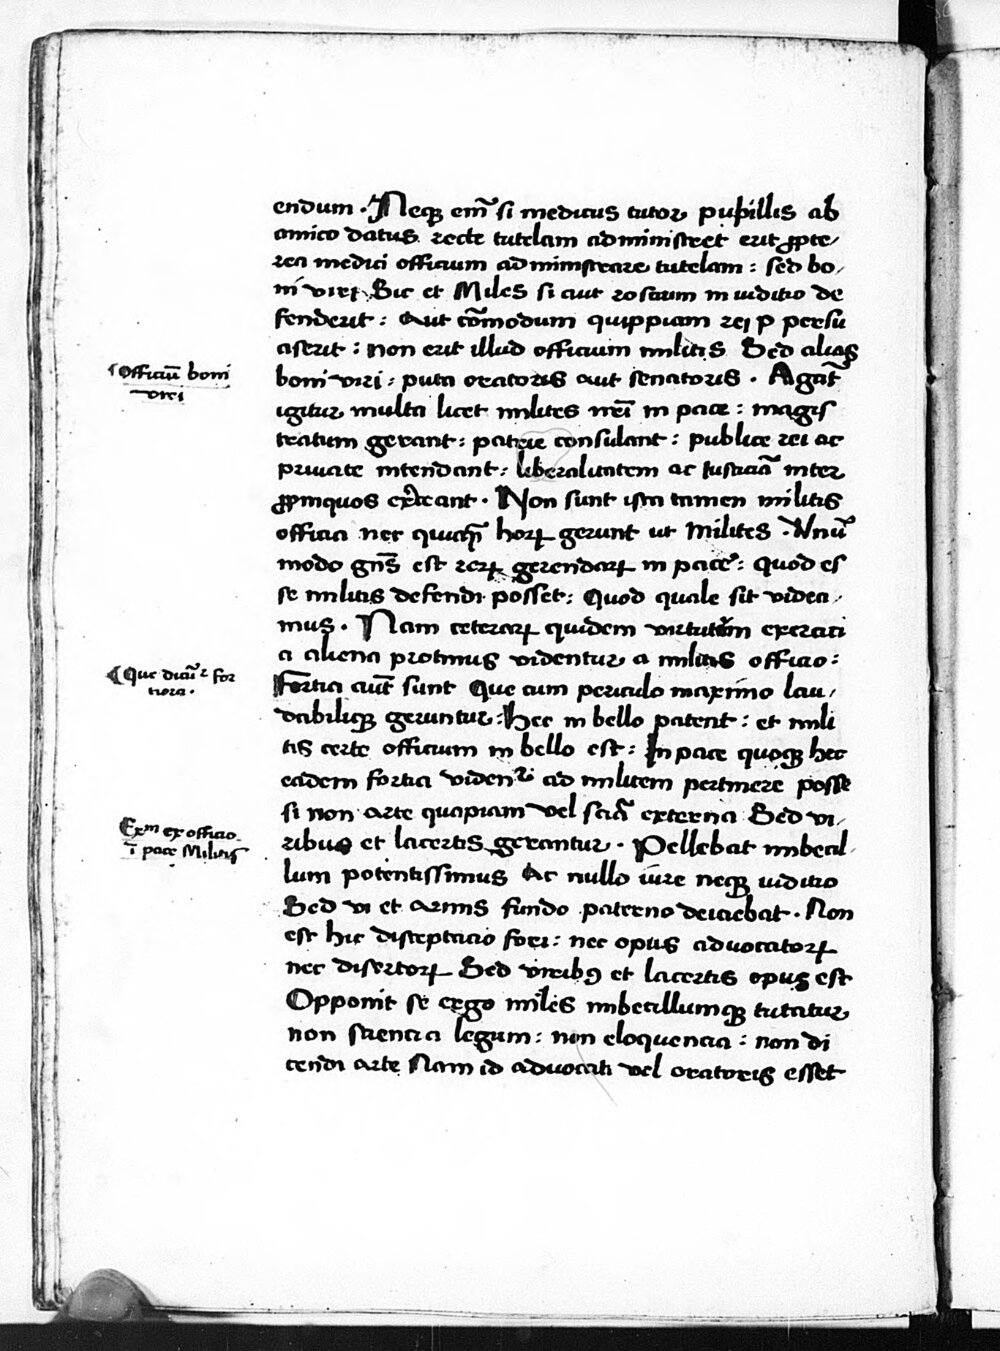 endum . Neqꝫ em̄ si medicus tutor pupillis ab
amico datus recte tutelam administret erit ꝓpte/
rea medici officium administrare tutelam : sed bo/
ni viri Sic et Miles si aut rostrum in iuditio de
fenderit : Aut cōmodum quippiam rei p persu
aserit : non erit illud officium militis Sed alias
boni viri : puta oratoris aut senatoris . Agāt
igitur multa licet milites nr̄i in pace : magis
tratum gerant : patrie consulant : publice rei ac
priuate intendant : liberalitatem ac iusticiā inter
ꝓpinquos ex̾ceant . Non sunt ista tamen militis
officia nec quicq̄ horꝝ gerunt ut Milites . Vnū
modo gn̄s est rerꝝ gerendarꝝ in pace : quod es
se militis defendi posset : Quod quale sit videa/
mus . Nam ceterarꝝ quidem virtutum exercici
a aliena protinus videntur a militis officio :
Fortia aūt sunt Que cum periculo maximo lau/
dabiliqꝫ geruntur : Hec in bello patent : et mili
tis certe officium in bello est : In pace quoqꝫ hec
eadem fortia videnᷣ ad militem pertinere posse
si non arte quapiam vel sciā externa Sed vi/
ribus et lacertis gerantur . Pellebat imbecil/
lum potentissimus Ac nullo iure neqꝫ iuditio
Sed vi et armis fundo paterno deiciebat . Non
est hic disceptacio fori : nec opus aduocatorꝝ
nec disertorꝝ Sed viribꝰ et lacertis opus est
Opponit se ergo miles imbecillumqꝫ tutatur
non sciencia legum : non eloquencia : non di
cendi arte Nam id aduocati vel oratoris esset
Officiū boni
viri
Que dicūᷣ for
tiora .
Exᵐ ex officio
ī pace Militis